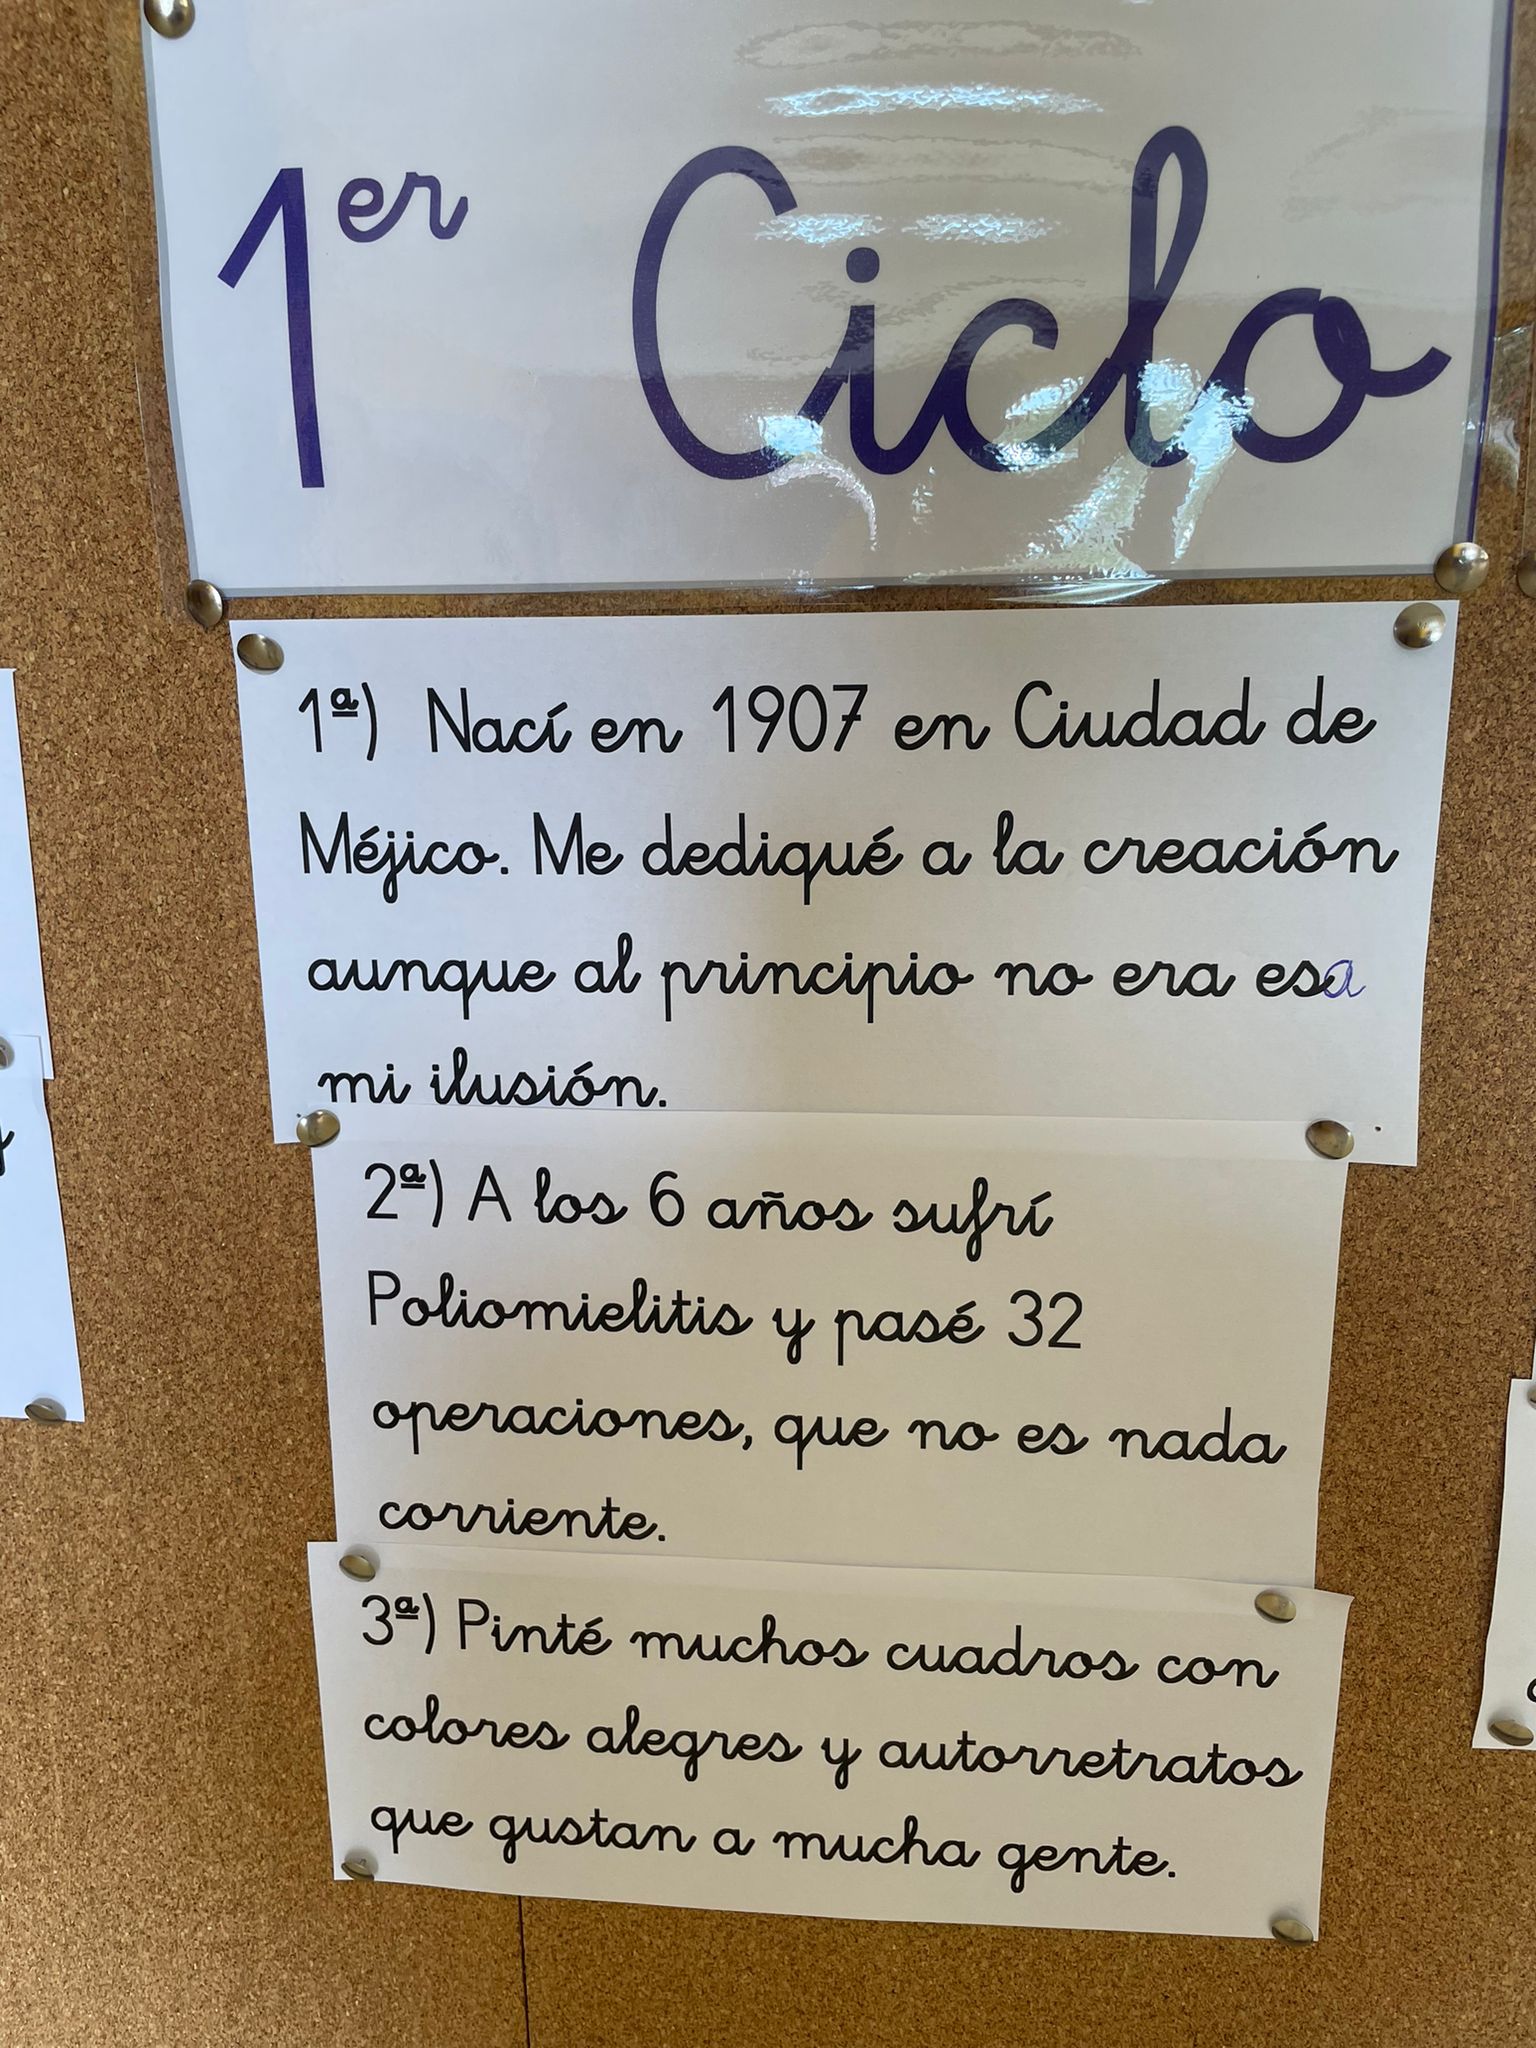 1er Ciclo
1ª) Nací en 1907 en Ciudad de
Méjico. Me dediqué a la creación
aunque al principio no era esa
mi ilusión.
2ª) A los 6 años sufrí
Poliomielitis y pasé 32
operaciones, que no es nada
corriente.
3ª) Pinté muchos cuadros con
colores alegres y autorretratos
que gustan a mucha gente.